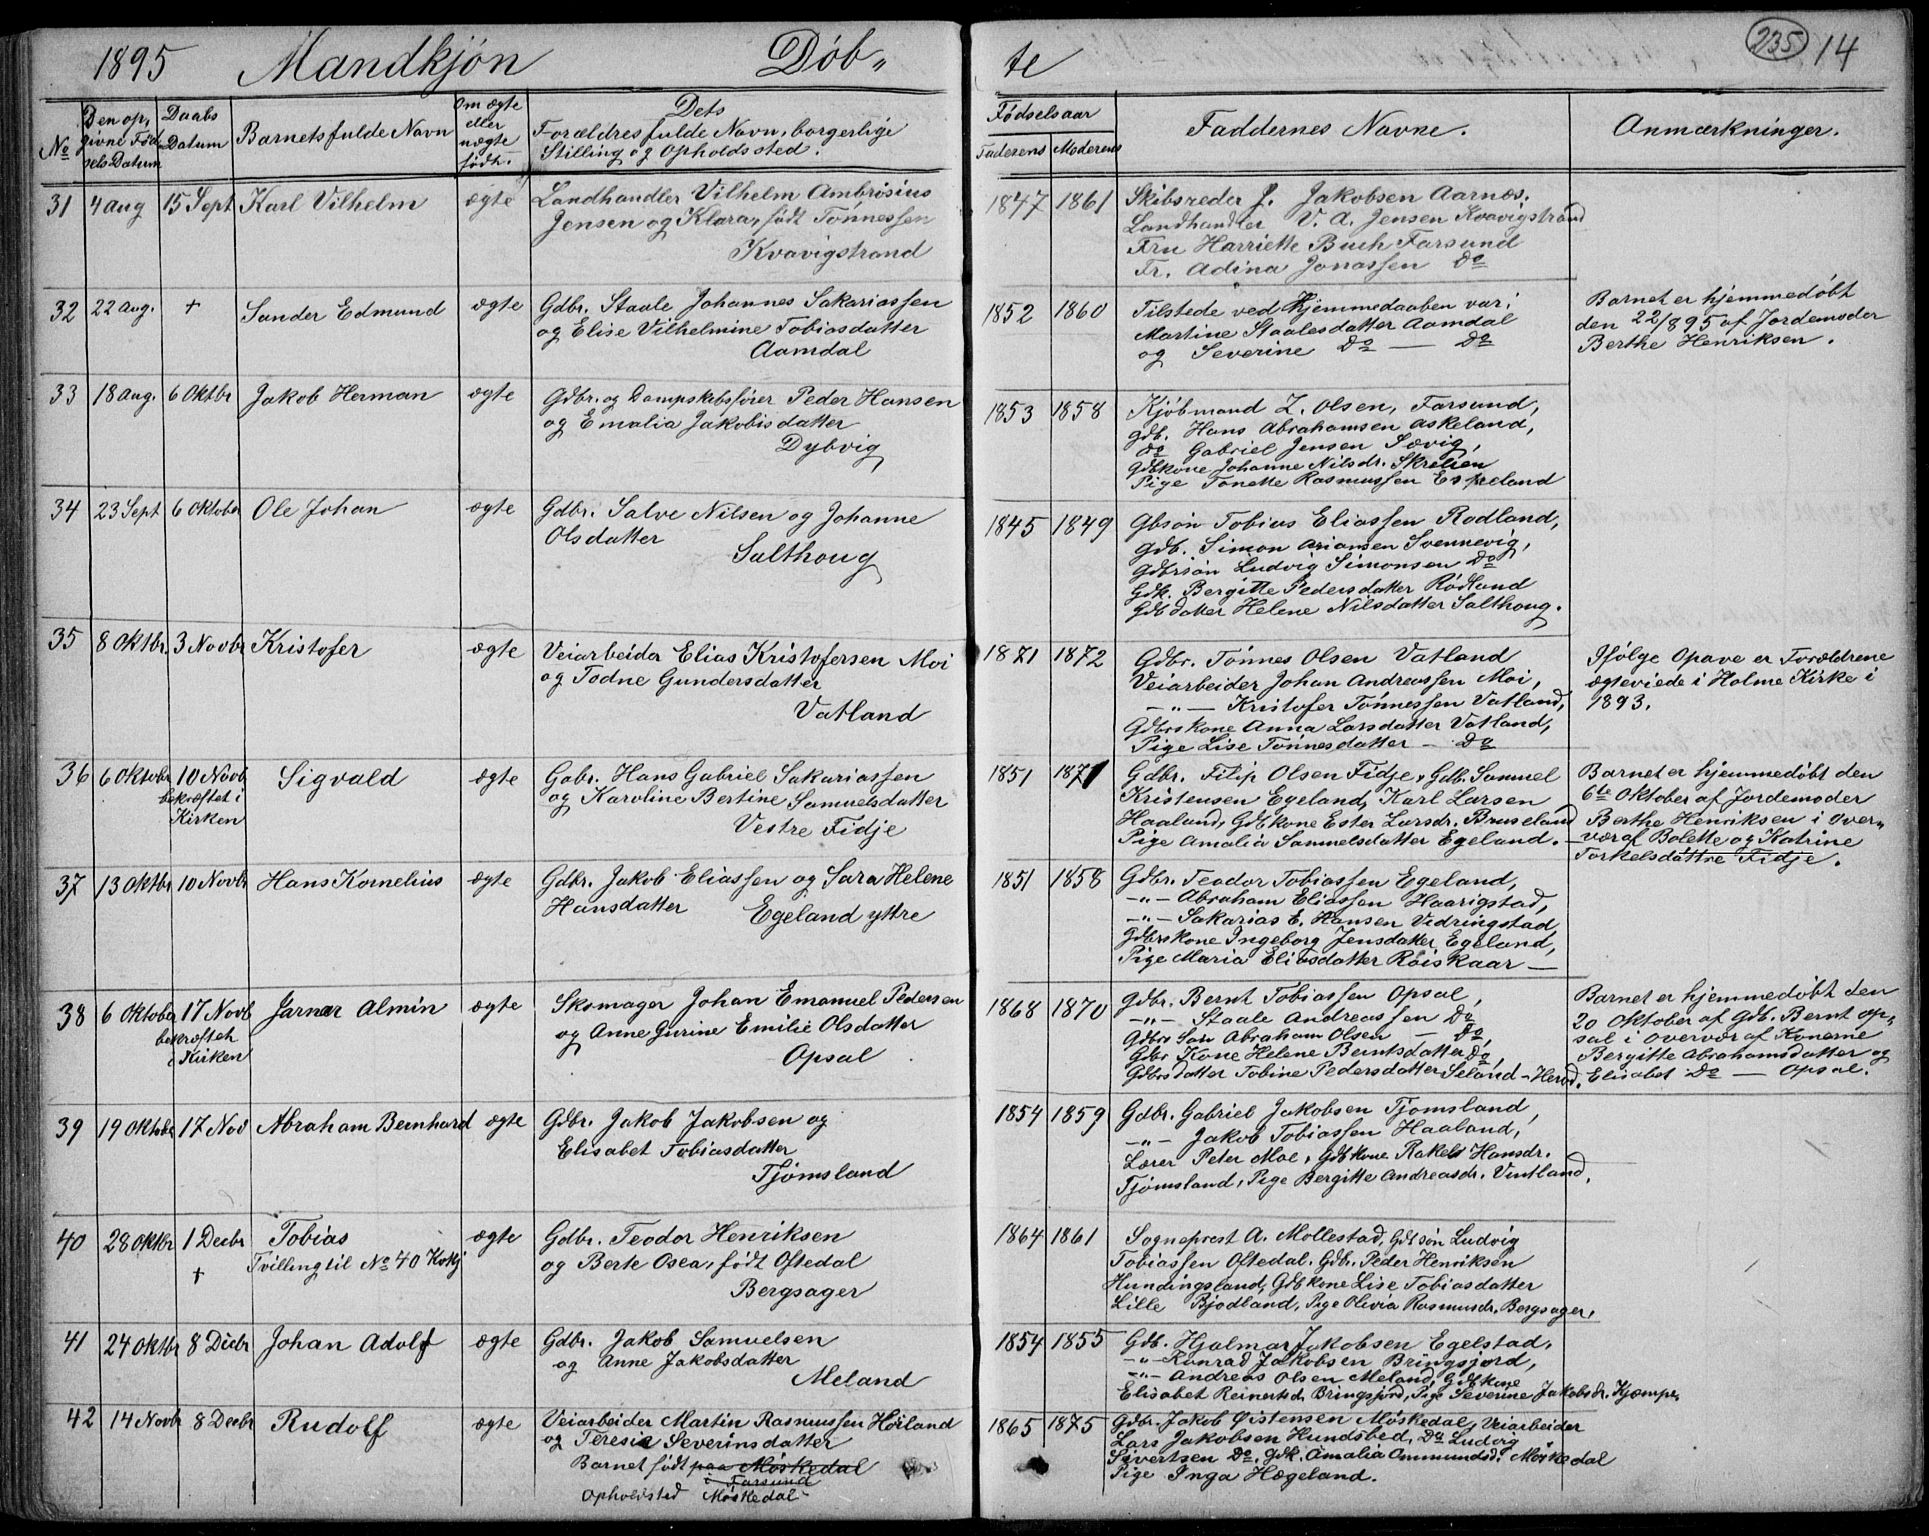 1895 Mandkjön Döb„
te 235 14
No
Den opgivne Födselsdatum
Daabs Datum
Barnets fulde Navn
Om ægte eller uægte födt.
Dets
Forældres fulde Navn, borgerlige
Stilling og Opholdssted.
Födselsaar
Faderens Moderens
Faddernes Navne.
Anmærkninger.
31 4 Aug 15 Sept Karl Vilhelm ægte
Landhandler Vilhelm Ambrosius
Jensen og Klara, födt Tönnessen
Kvavigstrand
1847 1861
Skibsreder J. Jakobsen Aarnæs.
Landhandler V. A. Jensen Kvavigstrand
Fru Harriette Buch Farsund
Fr. Adina Jonassen Do
32 22 Aug. + Sander Edmund ægte
Gdbr. Staale Johannes Sakariassen
og Elise Vilhelmine Tobiasdatter
Aamdal
1852 1860
Tilstede ved Hjemmedaaben var:
Martine Staalesdatter Aamdal
og Severine Do — Do
Barnet er hjemmedöbt
den 22/895 af Jordemoder
Berthe Henriksen.
33 18 Aug. 6 Oktbr Jakob Herman ægte
Gdbr. og Dampskibsförer Peder Hansen
og Emalia Jakobisdatter
Dybvig
1853 1858
Kjöbmand Z. Olsen, Farsund,
Gdb. Hans Abrahamsen Askeland,
Do Gabriel Jensen Sævig,
Gdbkone Johanne Nilsdr. Skrelien
Pige Tonette Rasmussen Espeland
34 23 Sept 6 Oktober Ole Johan ægte
Gdbr. Salve Nilsen og Johanne
Olsdatter
Salthoug
1845 1849
Gbsön Tobias Eliassen Rodland,
Gdb. Simon Ariansen Svennevig,
Gdbrsön Ludvig Simonsen Do
Gdk. Bergitte Pedersdatter Rödland
Gdbdatter Helene Nilsdatter Salthoug.
35 8 Oktbr. 3 Novbr Kristofer ægte
Veiarbeider Elias Kristofersen Moi
og Todne Gundersdatter
Vatland
1871 1872
Gdbr. Tönnes Olsen Vatland
Veiarbeider Johan Andreassen Moi,
— „ — Kristofer Tönnessen Vatland,
Gdbrskone Anna Larsdatter Vatland,
Pige Lise Tönnesdatter — Do
Ifölge Opave er Forældrene
ægteviede i Holme Kirke i
1893.
36 6 Oktober 10 Novb Sigvald ægte
bekræftet i
Kirken
Gabr. Hans Gabriel Sakariassen
og Karoline Bertine Samuelsdatter
Vestre Fidje
1851 1871
Gdbr. Filip Olsen Fidje, Gdb. Samuel
Kristensen Egeland, Karl Larsen
Haaland, Gdbkone Ester Larsdr. Bruseland
Pige Amalia Sammelsdatter Egeland.
Barnet er hjemmedöbt den
6te Oktober af Jordemoder
Berthe Henriksen i Over„
vær af Bolette og Katrine
Torkelsdöttre Fidje.
37 13 Oktbr 10 Novbr Hans Kornelius ægte
Gdbr. Jakob Eliassen og Sara Helene
Hansdatter Egeland yttre
1851 1858
Gdbr. Teodor Tobiassen Egeland,
—„— Abraham Eliassen Haarigstad,
—„— Sakarias E. Hansen Vidringstad
Gdbrskone Ingeborg Jensdatter Egeland,
Pige Maria Eliasdatter Röiskaar —
38 6 Oktober 17 Novb Jarnar Almin ægte
bekræfteh
i Kirken
Skomager Johan Emanuel Pedersen
og Anne Gurine Emilie Olsdatter
Opsal
1868 1870
Gdbr. Bernt Tobiassen Opsal,
—„— Staale Andreassen Do
Gdbrs Sön Abraham Olsen — Do,
Gdbr Kone Helene Berntsdatter Do,
Gdbrsdatter Tobine Pedersdatter Seland — Herad.
Barnet er hjemmedöbt den
20 Oktober af Gdb. Bernt Op„
sal i Overvær af Konerne
Bergitte Abrahamsdatter og
Elisabet Do — Opsal.
39 19 Oktobe 17 Nov Abraham Bernhard ægte
Gdbr. Jakob Jakobsen og
Elisabet Tobiasdatter
Tjömsland
1854 1859
Gdbr. Gabriel Jakobsen Tjomsland,
—„— Jakob Tobiassen Haaland,
Lærer Peter Moe, Gdbkone Rakel Hansdr.
Tjömsland, Pige Bergitte Andreasdr. Vintland.
40 28 Oktbr 1 Decbr Tobias ægte
+ Tvilling til No 40 Kvkj
Gdbr. Teodor Henriksen
og Berte Osea, födt Oftedal
Bergsager
1864 1861
Sogneprest A. Mollestad, Gdbsön Ludvig
Tobiassen Oftedal. Gdbr. Peder Henriksen
Hundingsland, Gdbkone Lise Tobiasdatter
Lille Bjodland, Pige Olivia Rasmusdr. Bergsager.
41 24 Oktbr 8 Decbr Johan Adolf ægte
Gdbr. Jakob Samuelsen
og Anne Jakobsdatter
Meland
1854 1855
Gdb. Hjalmar Jakobsen Egelstad.
—„— Konrad Jakobsen Bringsjord,
—„— Andreas Olsen Meland, Gdbkone
Elisabet Reinertsd. Bringsjord, Pige Severine Jakobsdr. Kjæmpe
42 14 Novbr 8 Decbr Rudolf ægte
Veiarbeider Martin Rasmussen Höiland
og Teresie Severinsdatter
Barnet födt paa Möskedal
i Farsund
Opholdsted Möskedal
1865 1875
Gdbr. Jakob Östensen Möskedal, Veiarbeider
Lars Jakobsen Hundsbed, Do Ludvig
Sivertsen Do. Gdk. Amalia Ommundsd. Möskedal
Pige Inga Hægeland.